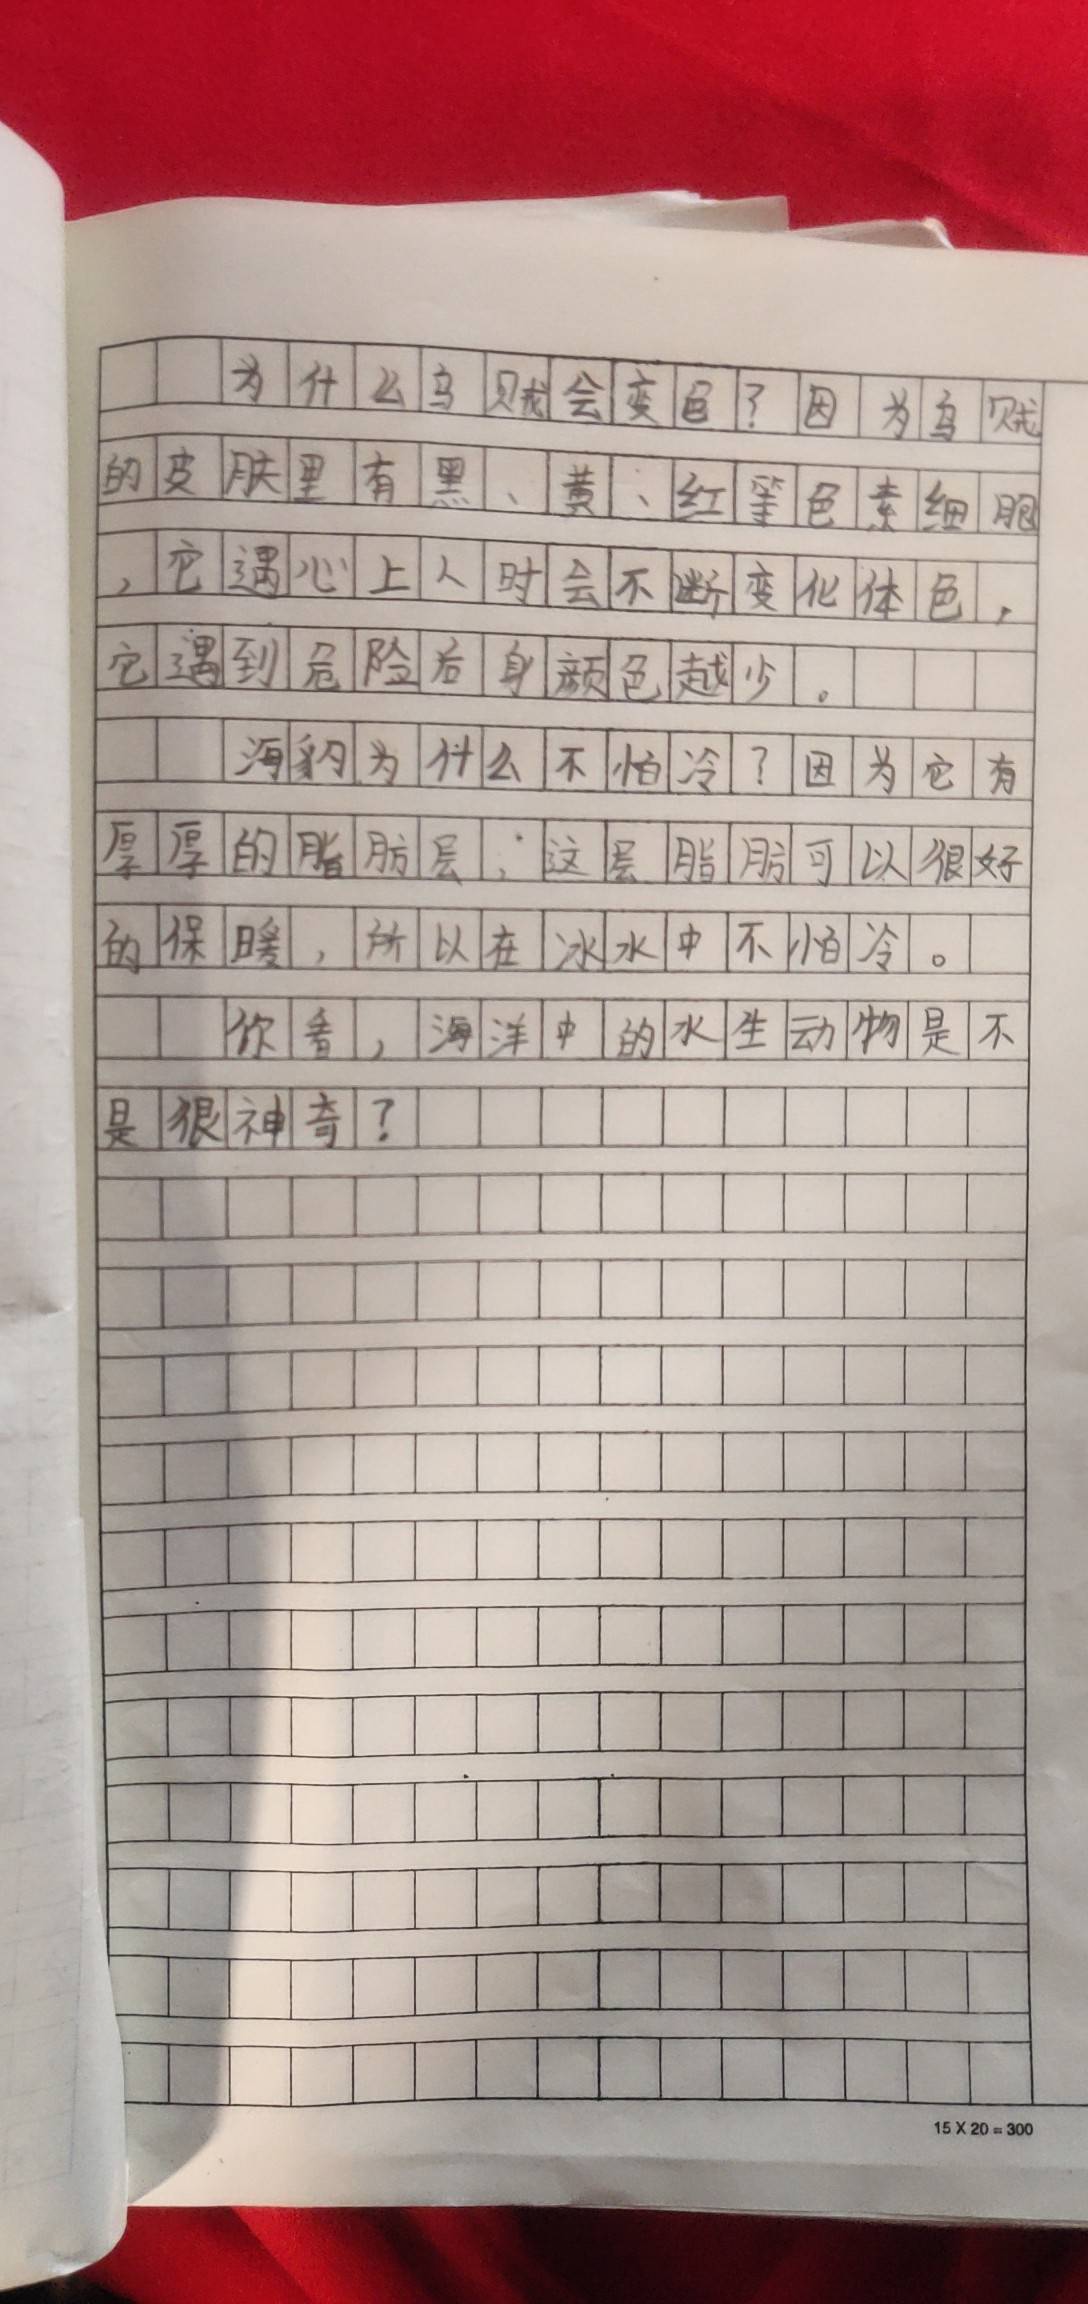 为什么乌贼会变色?因为乌贼
的皮肤里有黑、黄、红等色素细胞
,它遇心上人时会不断变化体色,
它遇到危险后身颜色越少。
海豹为什么不怕冷?因为它有
厚厚的脂肪层,这层脂肪可以很好
的保暖,所以在冰水中不怕冷。
你看,海洋中的水生动物是不
是很神奇?
15×20=300